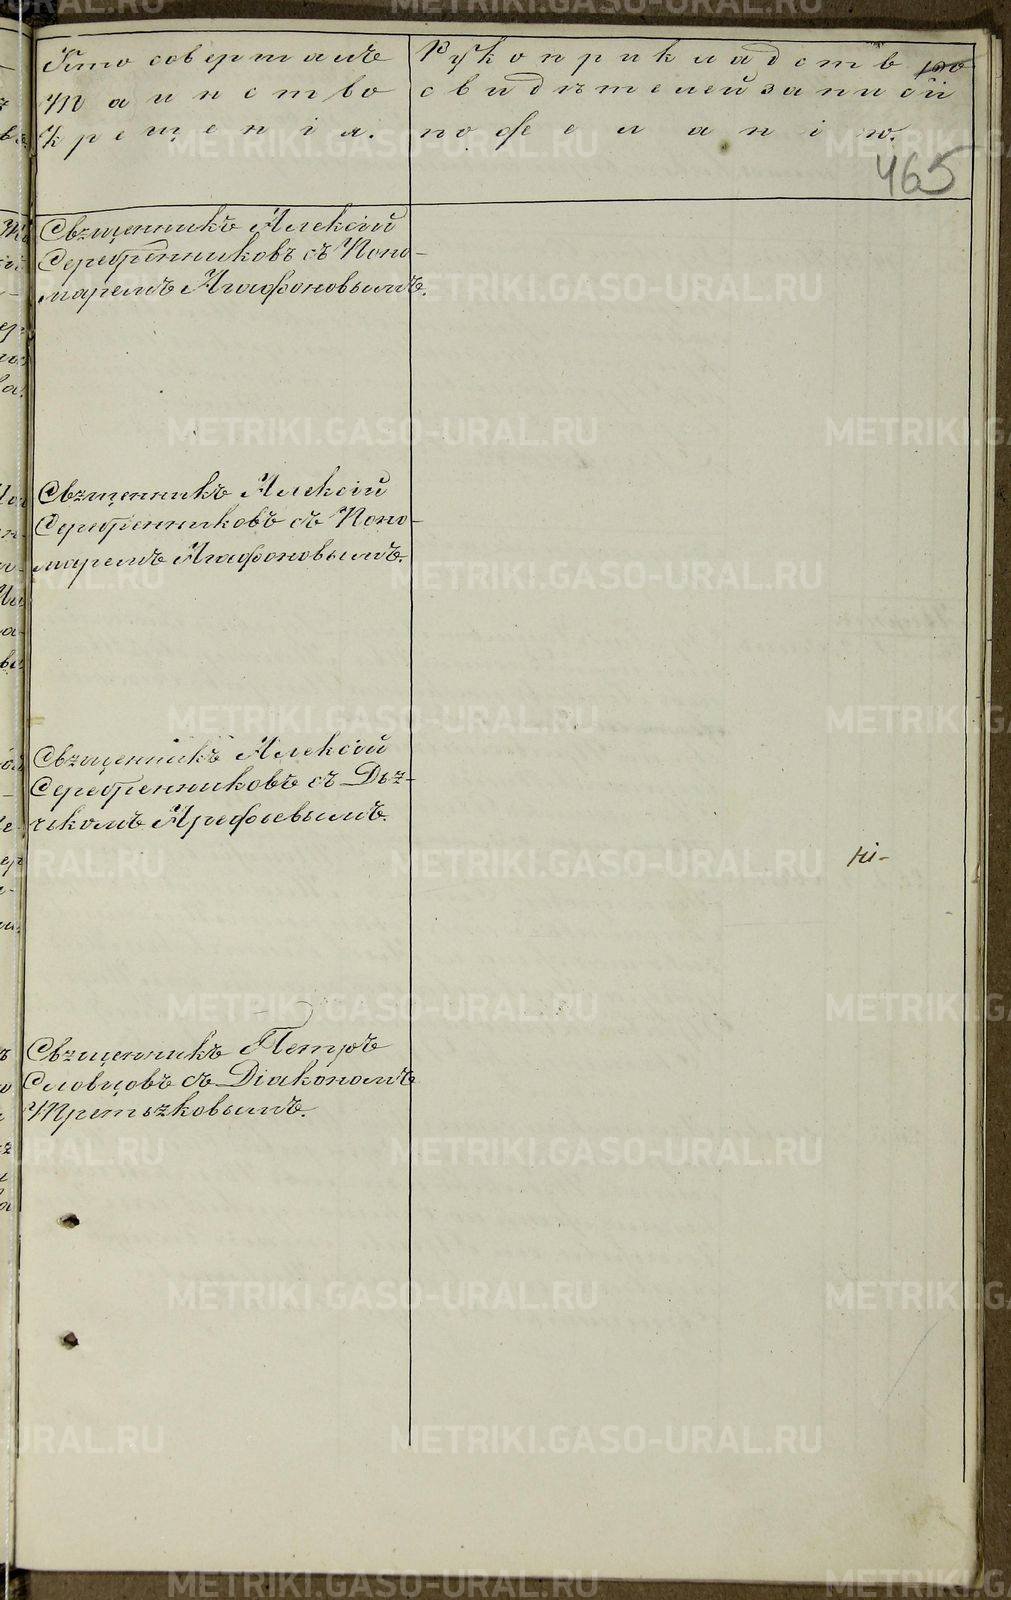 Кто совершалъ
Таинство
Крещенія.
Рукоприкладство
свидѣтелей записи
по желанію.
465
Священникъ Алексій
Серебренниковъ съ Поно-
маремъ Агафоновымъ.
Священникъ Алексій
Серебренниковъ съ Поно-
маремъ Агафоновымъ.
Священникъ Алексій
Серебренниковъ съ Дья-
чкомъ Арефьевымъ.
Священникъ Петръ
Словцовъ съ Діакономъ
Третьяковымъ.
METRIKI.GASO-URAL.RU